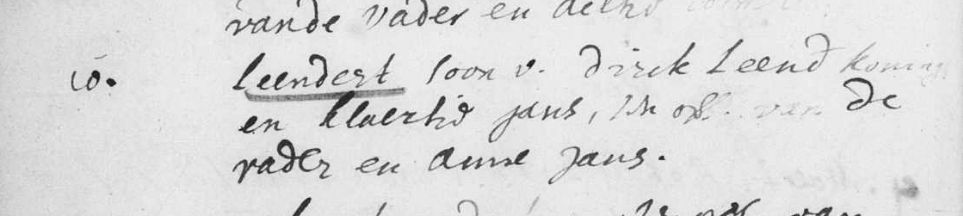 vande vader en
10. leendert soon v. dirck Leend koning
en klaertie jans, in ops. van de
vader en anne jans.
van